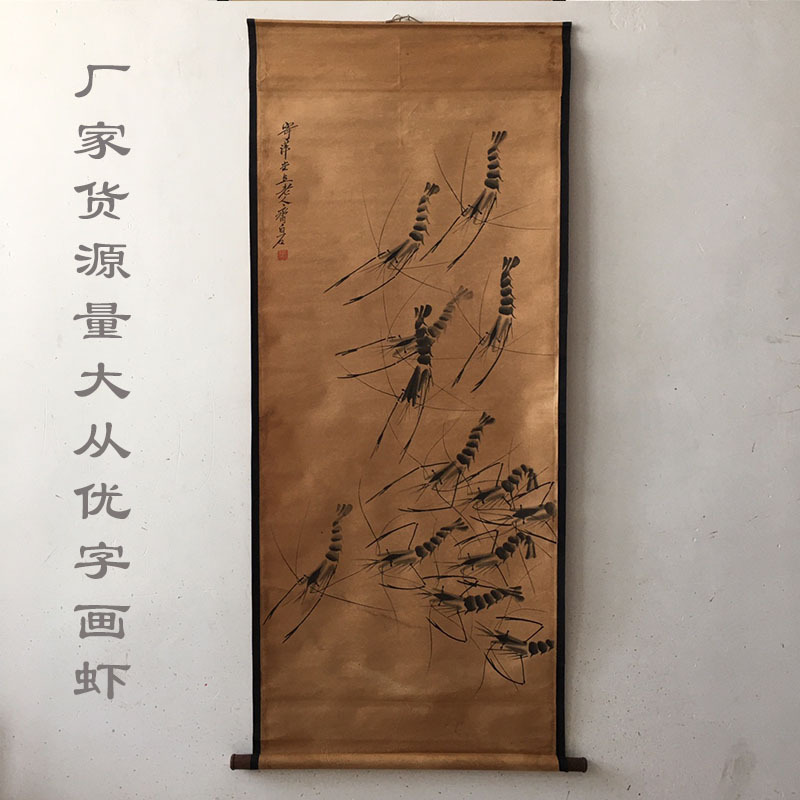 厂家货源量大从优字画虾
寄萍堂上老人齐白石